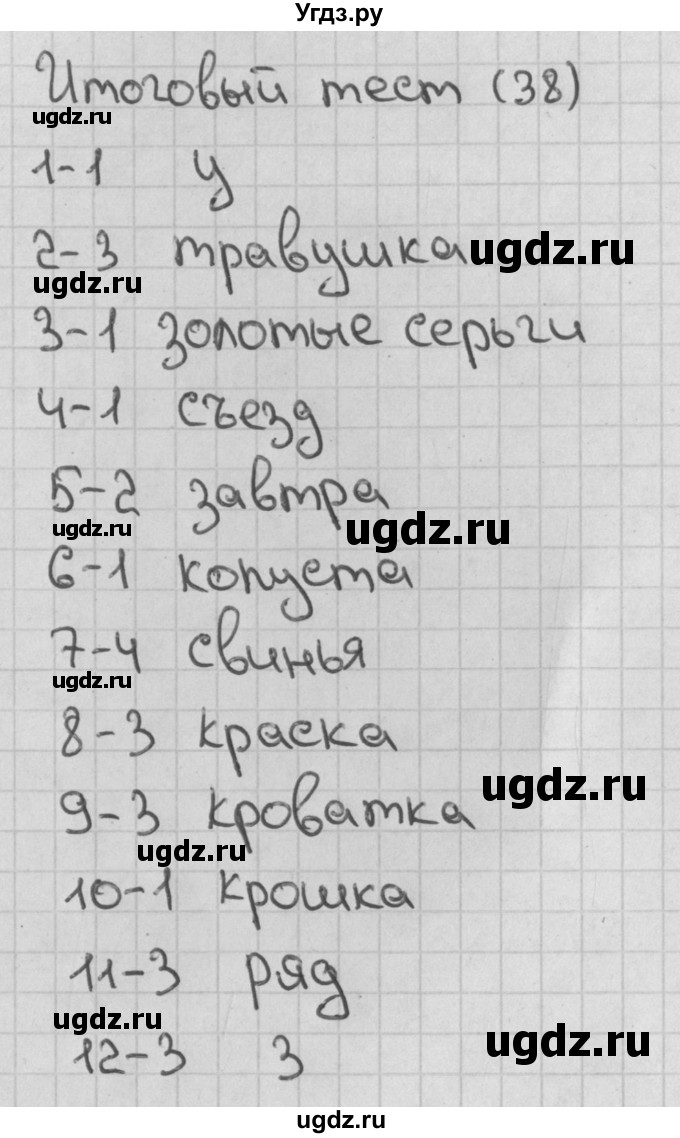 Угдз.ру
Итоговый тест (38)
ugdz.ru
1-1 у
2-3 травушка ugdz.ru
ugdz.ru
3-1 золотые серьги
4-1 съезд
5-2 завтра
ugdz.ru ugdz.ru
6-1 копуста
7-4 свинья
ugdz.ru
8-3 краска
ugdz.ru
9-3 кроватка
ugdz.ru
10-1 крошка
11-3 ряд
ugdz.ru ugdz.ru
12-3 3
ugdz.ru